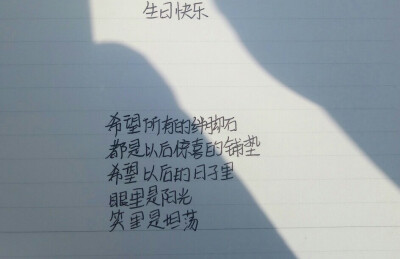 生日快乐
希望所有的绊脚石
都是以后惊喜的铺垫
希望以后的日子里
眼里是阳光
笑里是坦荡